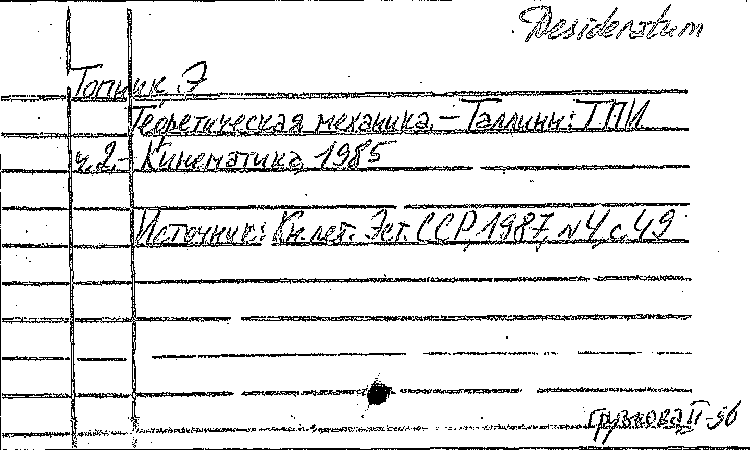 Desideratum
Топник Э
Теоретическая механика. – Таллинн: ТПИ
ч.2. – Кинематика, 1985
Источник: Кн. лет. Эст. ССР, 1987, N4, с.49
Грузнова II-96